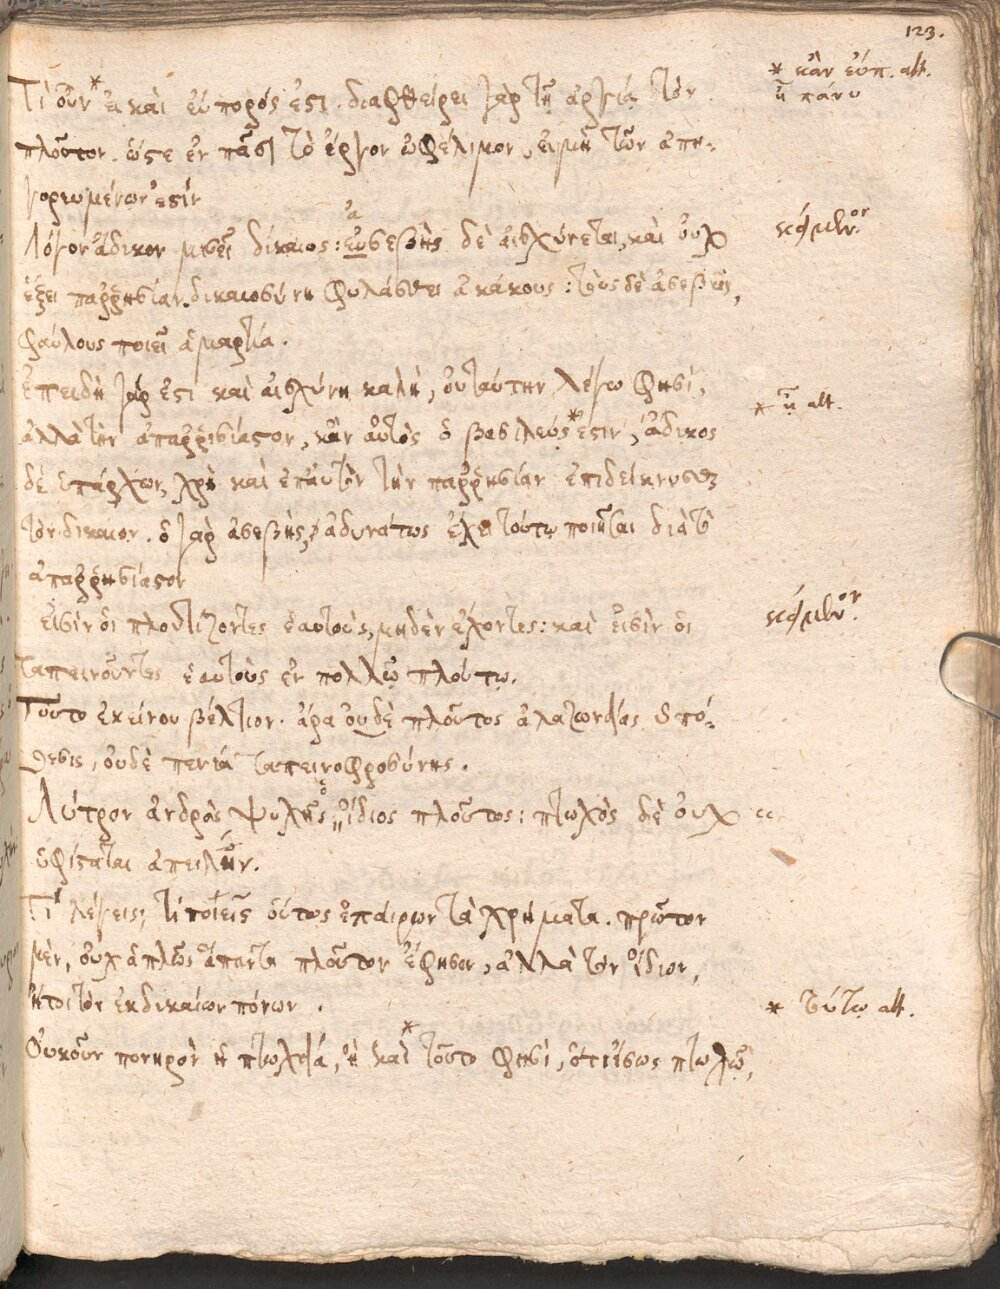 123.
Τί οὖν* εἰ καὶ εὔπορός ἐστι. διαφθείρει γὰρ τῇ ἀργίᾳ τὸν
* κἂν εὔπ. alt.
ᾖ πάνυ
πλοῦτον. ὥστε ἐν πᾶσι τὸ ἔργον ὠφέλιμον, εἰ μὴ τῶν ἀπη-
γορευμένων ἐστίν
Λόγον ἄδικον μισεῖ δίκαιος: εὐσεβὴς δὲ αἰσχύνεται, καὶ οὐχ
ἀ
κείμενον.
ἕξει παῤῥησίαν. δικαιοσύνη φυλάσσει ἀκάκους: τοὺς δὲ ἀσεβεῖς,
φαύλους ποιεῖ ἁμαρτία.
Ἐπειδὴ γάρ ἐστι καὶ αἰσχύνη καλή, οὐ ταύτην λέγω φησί,
* ᾖ alt.
ἀλλὰ τὴν ἀπαῤῥησίαστον, κἂν αὐτὸς ὁ βασιλεύς* ἐστιν, ἄδικος
δὲ ὑπάρχων, χρὴ καὶ ἐπ' αὐτὸν τὴν παῤῥησίαν ἐπιδείκνυσθαι
τὸν δίκαιον. ὁ γὰρ ἀσεβής, ἀδυνάτως ἔχει τοῦτο ποιῆσαι διὰ τὸ
ἀπαῤῥησίαστον
Εἰσὶν οἱ πλουτίζοντες ἑαυτούς, μηδὲν ἔχοντες: καὶ εἰσὶν οἱ
κείμενον.
ταπεινοῦντες ἑαυτοὺς ἐν πολλῷ πλούτῳ.
Τοῦτο ἐκείνου βέλτιον. ἄρα οὐδὲ πλοῦτος ἀλαζονείας ὑπό-
θεσις, οὐδὲ πενία ταπεινοφροσύνης.
Λύτρον ἀνδρὸς ψυχῆς ὁ ἴδιος πλοῦτος: πτωχὸς δὲ οὐχ
ὑφίσταται ἀπειλήν.
Τί λέγεις; τί ποιεῖς οὕτως ἐπαίρων τὰ χρήματα. πρῶτον
μέν, οὐχ ἁπλῶς ἅπαντα πλοῦτον ἔφησεν, ἀλλὰ τὸν ἴδιον,
ἤτοι τὸν ἐκ δικαίων πόνων.
* τούτῳ alt.
Οὐκοῦν πονηρὸν ἡ πτωχεία, ἢ καὶ* τοῦτο φησί, ὅτι ἴσως πτωχῷ,